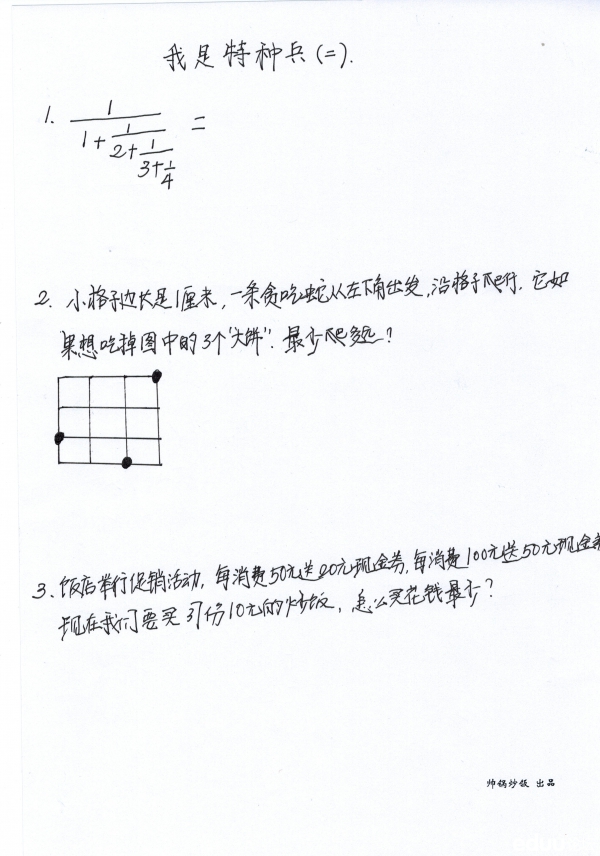 我是特种兵(二).
1. 1/(1+1/(2+1/(3+1/4))) =
2. 小格子边长是1厘米,一条贪吃蛇从左下角出发,沿格子爬行.它如
果想吃掉图中的3个"大饼".最少爬多远?
3. 饭店举行促销活动,每消费50元送20元现金券,每消费100元送50元现金券
现在我们要买 份10元的炒饭,怎么买花钱最少?
帅锅炒饭 出品